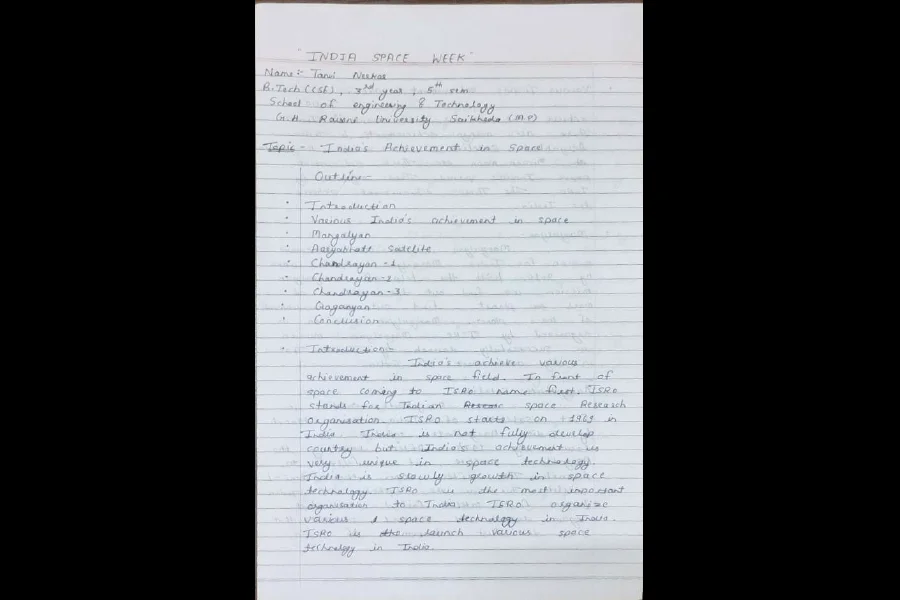 "INDIA SPACE WEEK"
Name:- Tanvi Neekar
B.Tech (CSE), 3rd year, 5th sem
School of engineering & Technology
G.H Raisoni University Saikheda (MP)
Topic - India's Achievement in Space
Outline-
• Introduction
• Various India's achievement in space
• Mangalyan
• Aaryabhatt Satelite
• Chandrayan-1
• Chandrayan-2
• Chandrayan-3
• Gaganyan
• Conclusion
• Introduction:-
India's achieve various
achievement in space field. In front of
space coming to ISRO name first. ISRO
stands for Indian space Research
organisation ISRO starts on 1969 in
India India is not fully develop
country but India's achievement is
very unique in space technology.
India is slowly growth in space
technology ISRO is the most important
organisation to India ISRO organize
various space technology in India.
ISRO is the launch various space
technology in India.